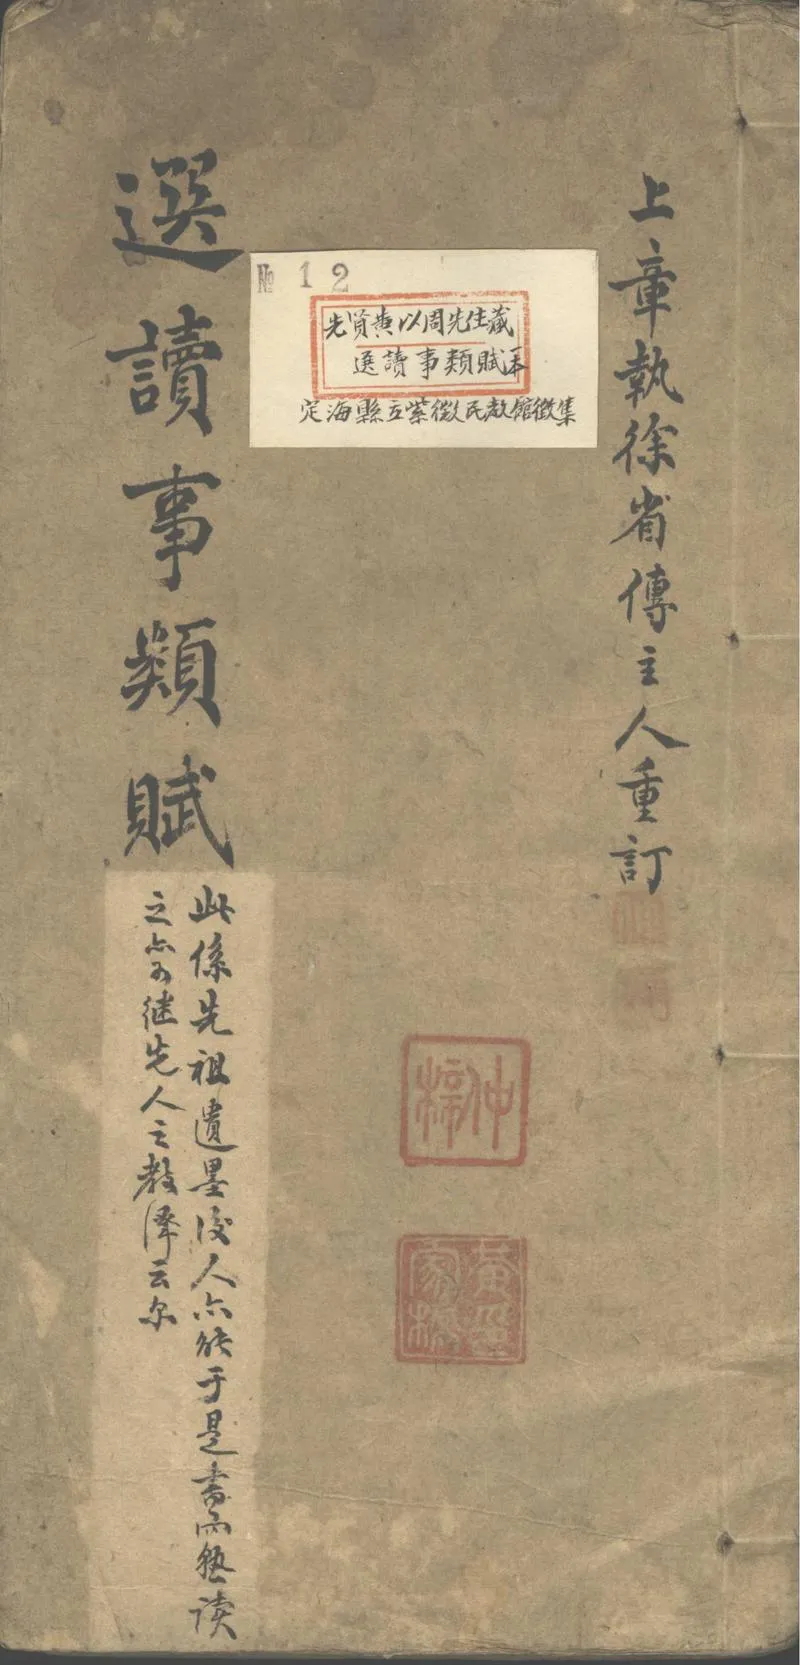 上章執徐省傳主人重訂
№ 12
先贤黄以周先生藏
選讀事類賦一本
定海縣立紫微民教館徵集
仲梓
選讀事類賦
此係先祖遺墨後人亦能于是書而熟读
之亦可继先人之教澤云尔